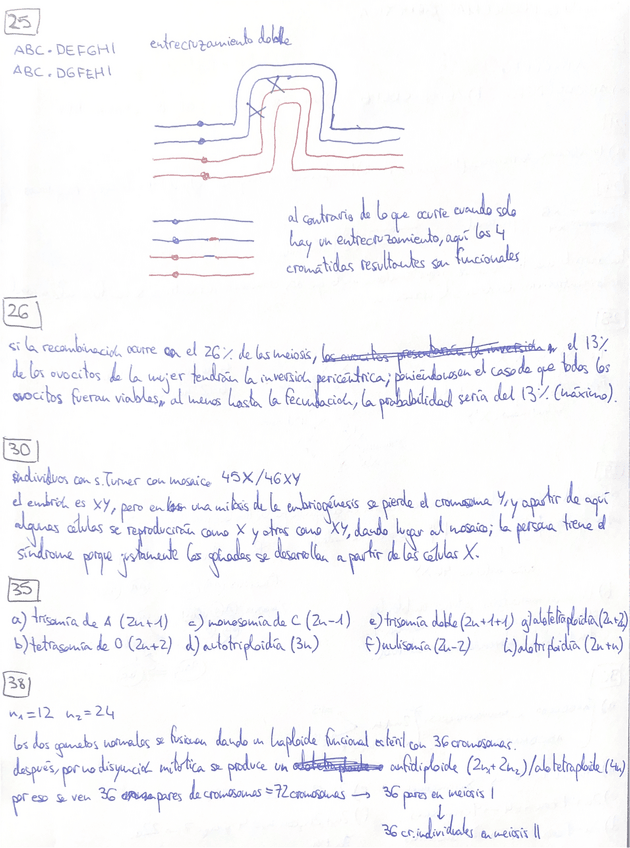 25
ABC·DEFGHI entrecruzamiento doble
ABC·DGFEHI
al contrario de lo que ocurre cuando solo
hay un entrecruzamiento, aquí las 4
cromátidas resultantes son funcionales
26
si la recombinación ocurre en el 26% de las meiosis, los ovocitos presentarán la inversión el 13%
de los ovocitos de la mujer tendrán la inversión pericéntrica; poniéndonos en el caso de que todos los
ovocitos fueran viables, al menos hasta la fecundación, la probabilidad sería del 13% (máximo).
30
individuos con s. Turner con mosaico 45X/46XY
el embrión es XY, pero en una mitosis de la embriogénesis se pierde el cromosoma Y, y a partir de aquí
algunas células se reproducirán como X y otras como XY, dando lugar al mosaico; la persona tiene el
síndrome porque justamente las gónadas se desarrollan a partir de las células X.
35
a) trisomía de A (2n+1) c) monosomía de C (2n-1) e) trisomía doble (2n+1+1) g) alotetraploidía (2n+2)
b) tetrasomía de D (2n+2) d) autotriploidía (3n) f) nulisomía (2n-2) h) alotriploidía (2n+n)
38
n₁=12 n₂=24
los dos gametos normales se fusionan dando un haploide funcional estéril con 36 cromosomas.
después, por no disyunción mitótica se produce un anfidiploide (2n₁+2n₂)/alotetraploide (4n)
por eso se ven 36 pares de cromosomas = 72 cromosomas → 36 pares en meiosis I
↓
36 cr. individuales en meiosis II